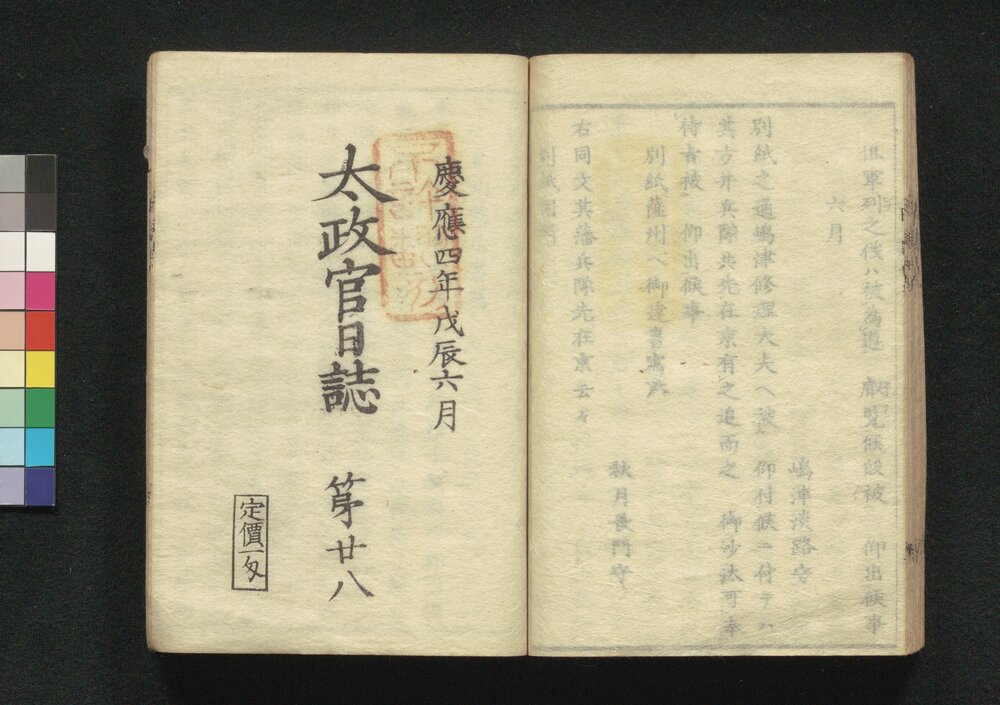 但軍列之儀ハ被為遊 叡覧候段被 仰出候事
六月
嶋津淡路守
別紙之通嶋津修理大夫へ被 仰付候ニ付テハ
其方并兵隊共先在京有之追而之 御沙汰可奉
待旨被 仰出候事
別紙薩州へ御達書寫略
秋月長門守
右同文其藩兵隊先在京云々
慶應四年戊辰六月
太政官日誌 第廿八
定價一匁